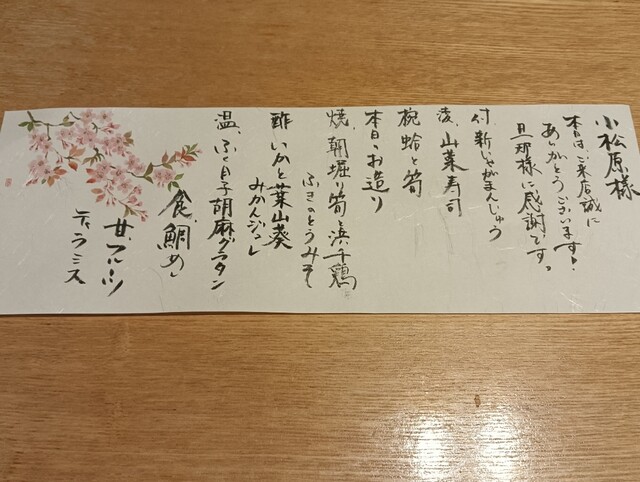 小松原様
本日はご来店誠に
ありがとうございます!
旦那様に感謝です。
付、新じゃがまんじゅう
凌、山菜寿司
椀、蛤と筍
本日のお造り
焼、朝堀り筍と浜千鶏
ふきのとうみそ
酢、いかと葉山葵
みかんジュレ
温、ふぐ白子胡麻グラタン
食、鯛めし
甘、フルーツ
ティラミス